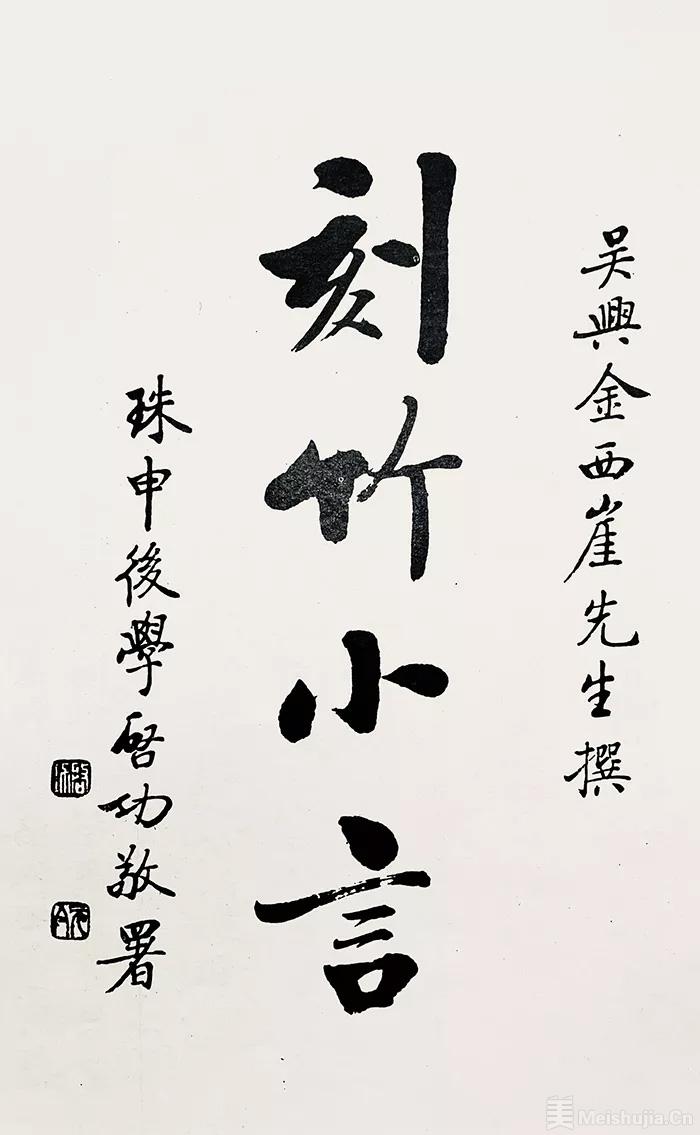 吴興金西崖先生撰
刻竹小言
珠申後學启功敬署
美 Meishujia.Cn